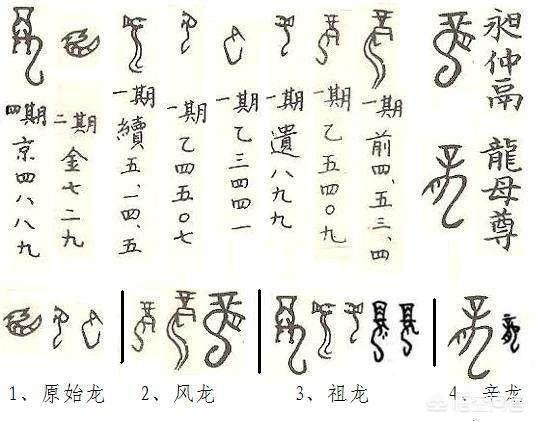 四期京四八八九
二期金七二九
一期續五.一四.五
一期乙四五〇七
一期乙三四四一
一期遺八九九
一期乙五四〇九
一期前四.五三.四
昶仲鬲
龍母尊
1、原始龙
2、风龙
3、祖龙
4、辛龙